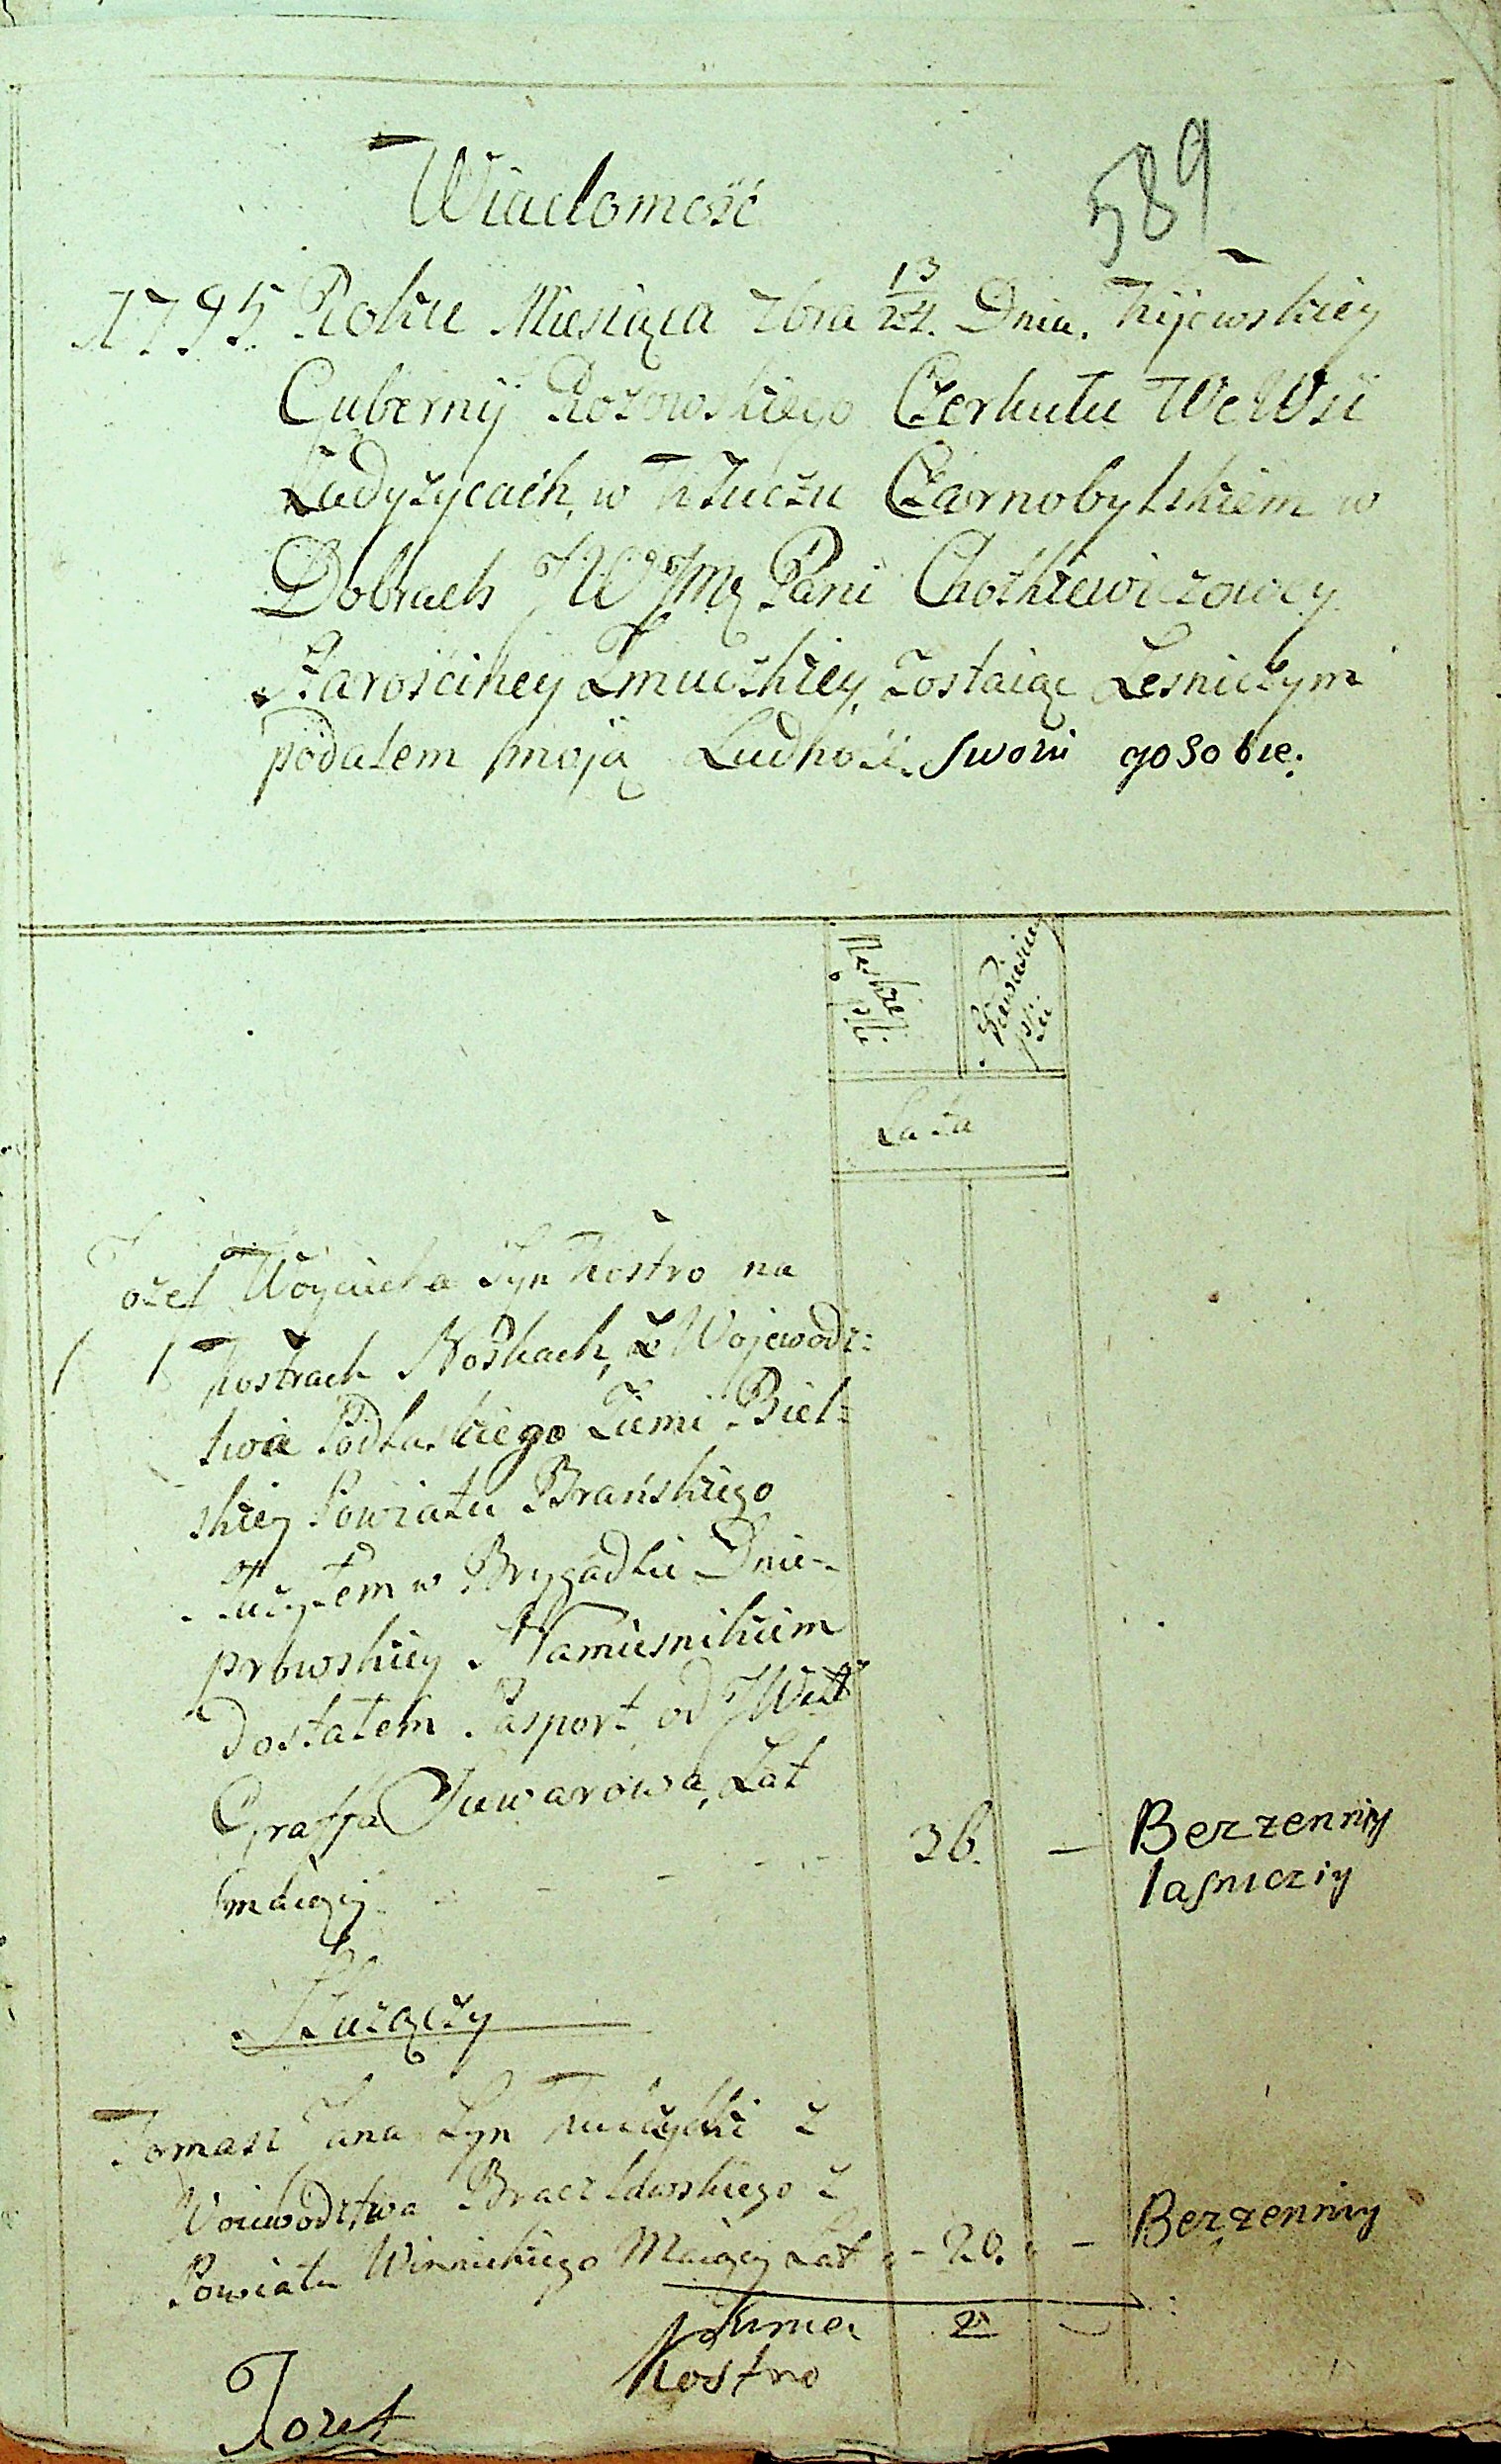 Wiadomość
589
1795 Roku Miesiąca 7bra 13/24. Dnia. Kijowskiey
Gubernij Rożowskiego Czerkułu We Wsii
Ładyżycach, w Kłuczu Czarnobylskiem w
Dobrach JW Jmę Pani Chotkiewiczowey
Starościney Zmuczkiey, Zostaiąc Lesniczym
podałem moją Ludność. swoiu gosobie.
Męskiey płci
Lata
Jozef Woyciecha Syn Kostro na
1 1 Kostrach Noskach, Z Wojewodz:
twa Podlaskiego Ziemi Biel:
skiey Powiatu Brańskiego
Służyłem w Brygadzie Dnie-
prowskiey Namiesnikiem
Dostałem Pasport od JW
Graffa Suwarowa, Lat
maiący - - - - - 36. — Bezzenniy
lasnicziy
Służączy
Tomasz Jana Syn z
Woiewodztwa Braczławskiego Z
Powiatu Winnickiego Maiący Lat - 20. - Bezzenniy
Summa 2
Jozef Kostro